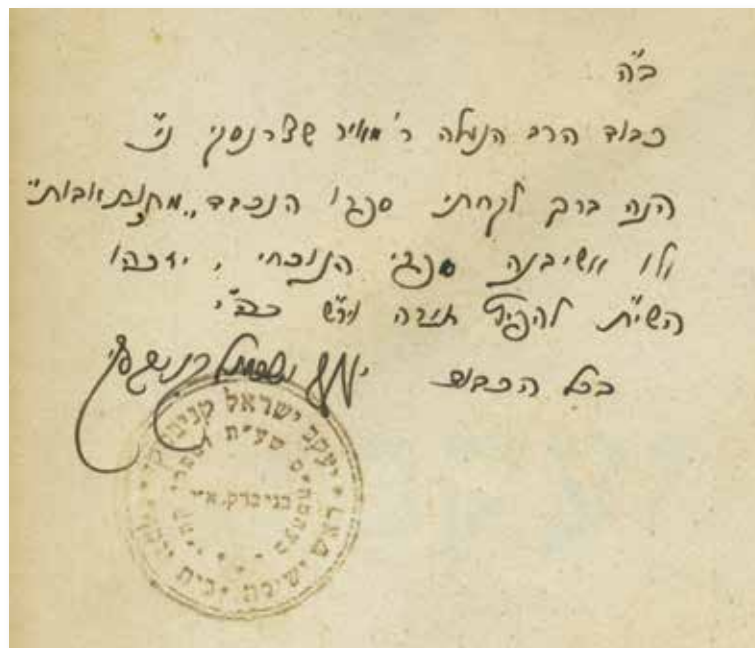 ב"ה
כבוד הרב הנעלה ר' מאיר שצרנסקי ני"
הנה ברב לקחתי ספרו הנכבד "מחנת אבות"
ולו אשיבנה ספרי הנוכחי, יזכהו
השי"ת להפיץ תורה ויר"ש כה"י
בכל הכבוד יעקב ישראל קניבסקי
יעקב ישראל קניבסקי
בני ברק, א"י